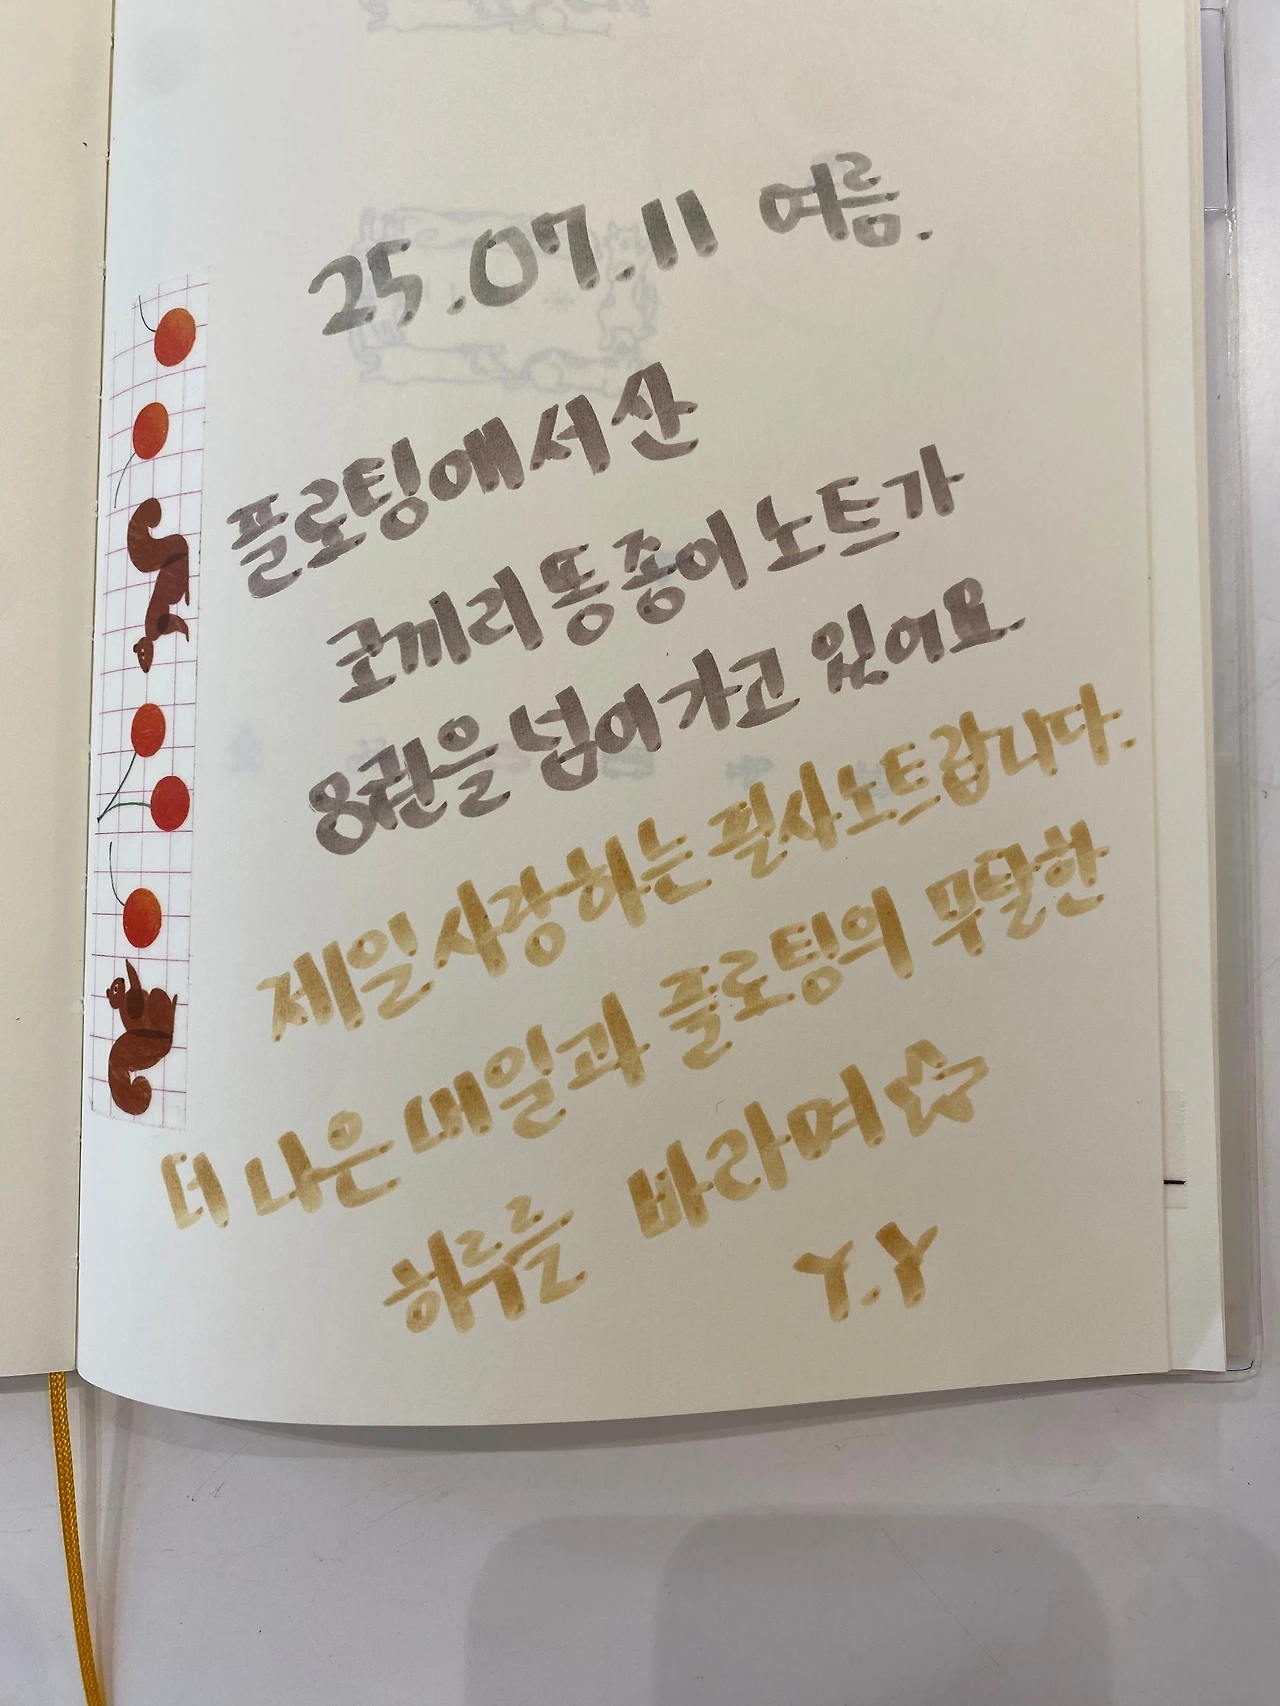 25.07.11 여름.
플로팅애서산
코끼리 똥 종이 노트가
8권을 넘어가고 있어요
제일 사랑하는 필사노트랍니다.
더 나은 내일과 플로팅의 무탈한
하루를 바라며☆
Y.Y